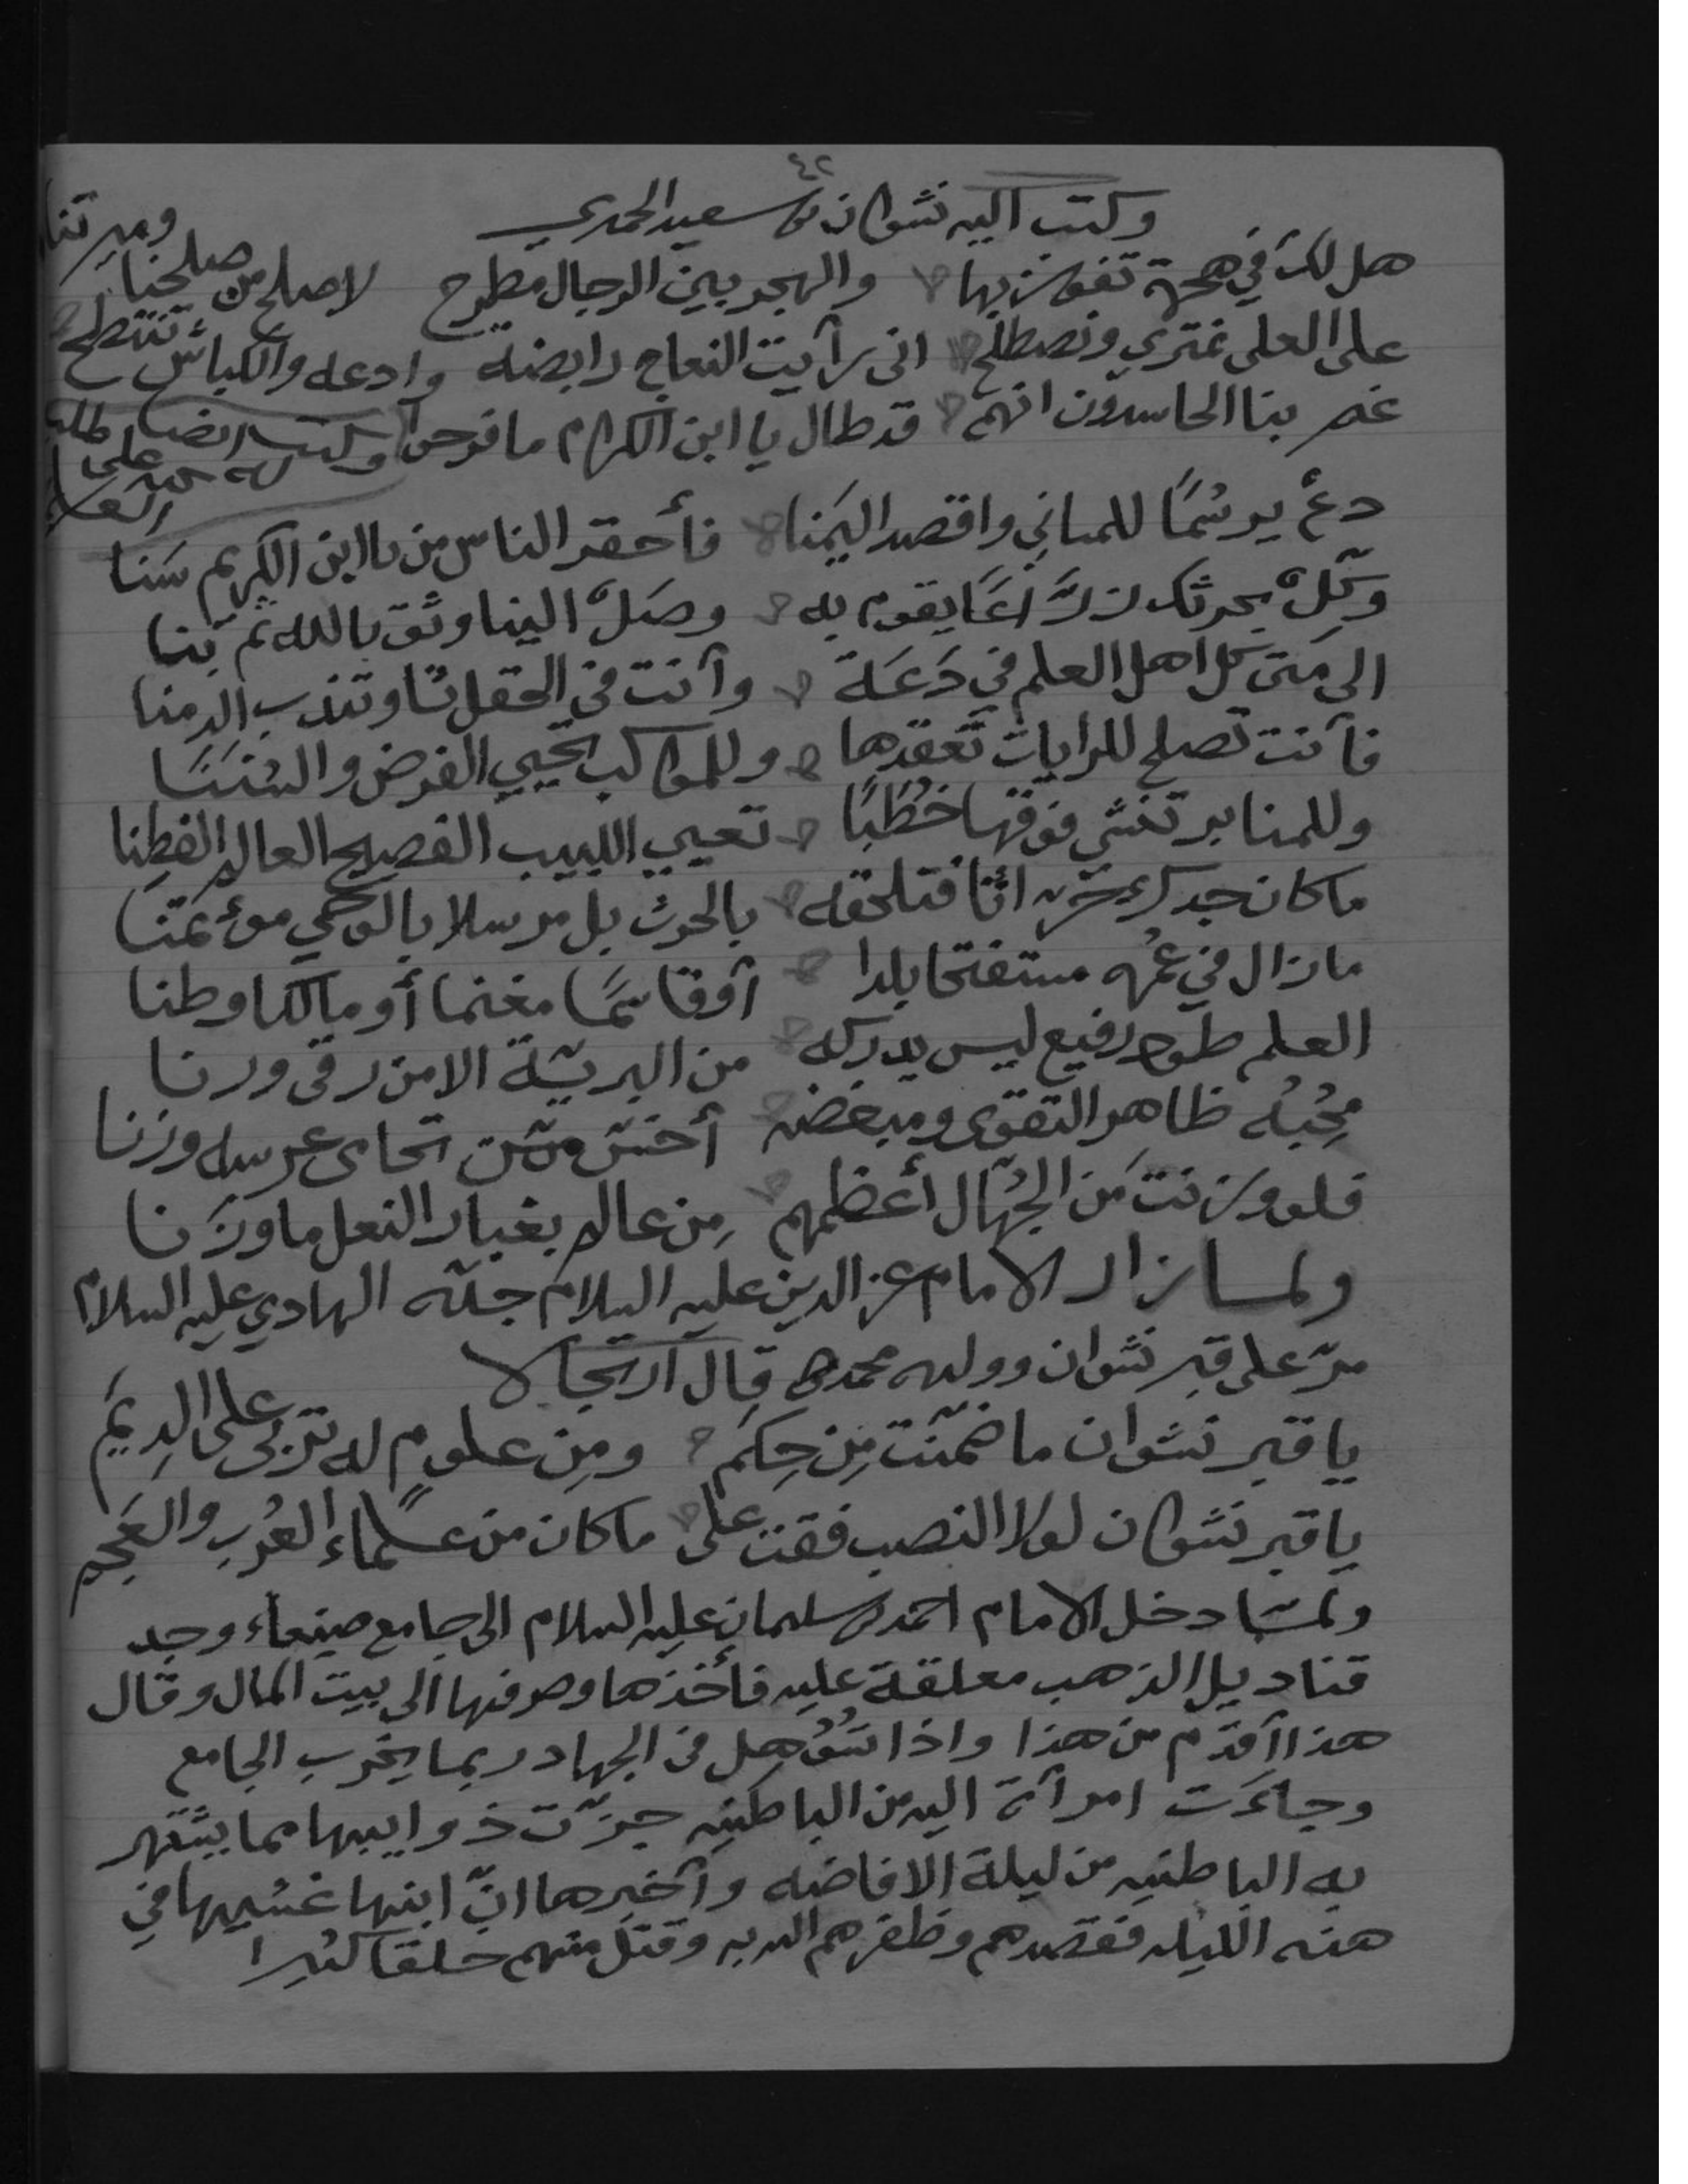 ٤٢
وكتب اليه نشوان بن سعيد الحميري
هل لك في هجرة تفوز بها والهجر بين الرجال مطرح لاصلح من صلحنا
على العلى نمتري ونصطلح انى رأيت النعاج رابضة وادعه والكباش تنتطح
غر بنا الحاسدون انهم قد طال يا ابن الكرام ما فرحوا
وكتب ايضا
دع يرسما للمباني واقصد اليمنا فأحقر الناس من يا ابن الكريم سنا
وكل بحرثك يقوم به وصل الينا وثق بالله ثم بنا
الى متى كل اهل العلم في دعة وأنت في الحقل وتندب الدمنا
فأنت تصلح للرايات تعقدها وللمواكب تحيي الفرض والسننا
وللمنابر تغشي فوقها خطبا تعيي اللبيب الفصيح العالم الفطنا
ما كان جدك فتلحقه بالحرث بل مرسلا بالوحي مؤتمنا
ما زال في عمره مستفتحا بلدا أو قاسمًا مغنما أو مالكا وطنا
العلم طود رفيع ليس يدركه من البرية الا من رقى ورنا
محبه ظاهر التقوى ومبغضه أخس ممن وزنا
فلو وزنت من الجهال أعظمهم من عالم بغبار النعل ما وزنا
ولما زار الامام عز الدين عليه السلام جده الهادي عليه السلام
مر على قبر نشوان وولده محمد قال ارتجالا
يا قبر نشوان ما ضمنت من حكم ومن علوم له تربى على الديم
يا قبر نشوان لولا النصب فقت على ما كان من علماء العرب والعجم
ولما دخل الامام احمد بن سليمان عليه السلام الى جامع صنعاء وجد
قناديل الذهب معلقة عليه فأخذها وصرفها الى بيت المال وقال
هذا أقدم من هذا واذا في الجهاد ربما يخرب الجامع
وجاءت امرأة اليه من الباطنيه جزت ذوايبها مما يشتهر
به الباطنيه من ليلة الافاضه وأخبرها ان ابنها غشيها في
هذه الليله فقصدهم وظفرهم الله به وقتل منهم خلقا كثيرا